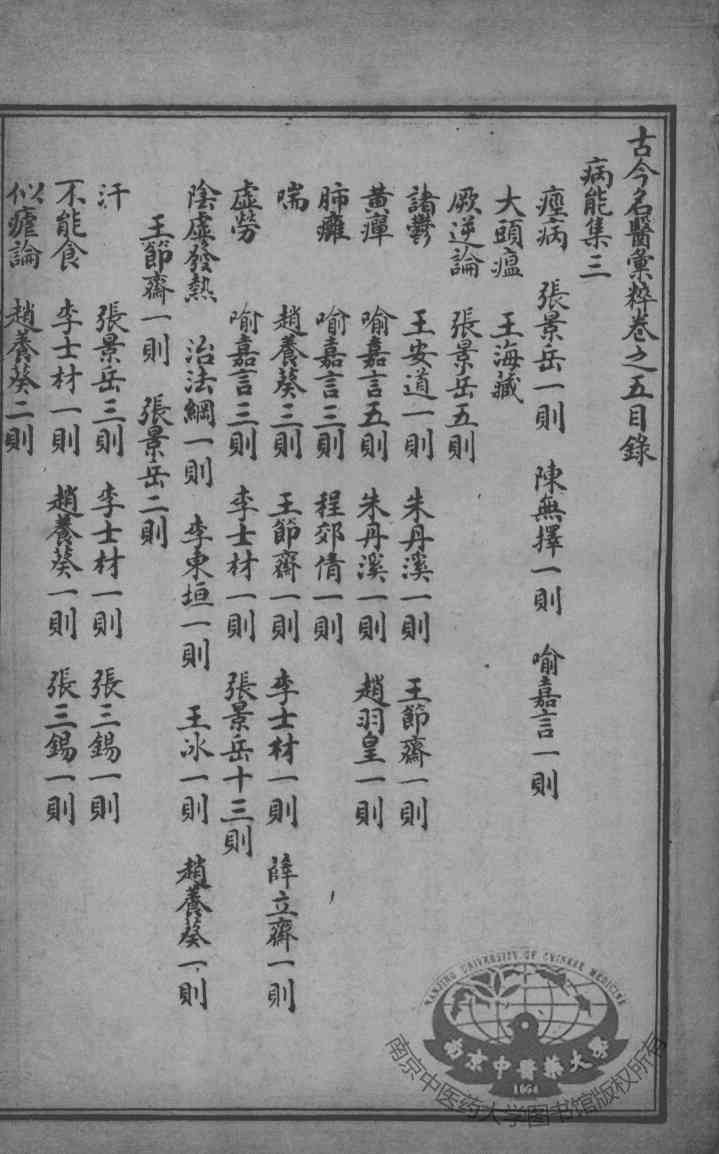 古今名醫彙粹卷之五目錄
病能集三
痙病　張景岳一則　陳無擇一則　喻嘉言一則
大頭瘟　王海藏
厥逆論　張景岳五則
諸鬱　王安道一則　朱丹溪一則　王節齋一則
黃癉　喻嘉言五則　朱丹溪一則　趙羽皇一則
肺癰　喻嘉言三則　程郊倩一則
喘　趙養葵三則　王節齋一則　李士材一則　薛立齋一則
虛勞　喻嘉言三則　李士材一則　張景岳十三則
陰虛發熱　治法綱一則　李東垣一則　王冰一則　趙養葵一則
王節齋一則　張景岳二則
汗　張景岳三則　李士材一則　張三錫一則
不能食　李士材一則　趙養葵一則　張三錫一則
似瘧論　趙養葵二則
NANJING UNIVERSITY OF CHINESE MEDICINE
南京中醫藥大學
1954
南京中医药大学图书馆版权所有